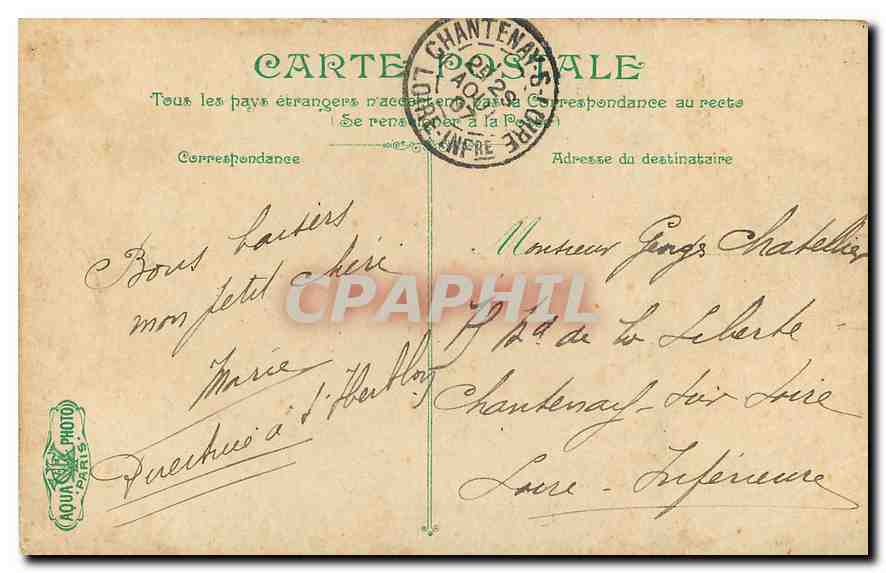 CARTE POSTALE
Tous les pays étrangers n'acceptent pas la Correspondance au recto
(Se renseigner à la Poste)
CHANTENAY-S-LOIRE
LOIRE-INFRE
AOUT
07
Correspondance
Adresse du destinataire
Bons baisers
mon petit chéri
Marie
Directrice à St Herblon
Monsieur Georges Chatellier
Bd de la Liberté
Chantenay-sur Loire
Loire-Inférieure
CPAPHIL
AQUA PHOTO
PARIS